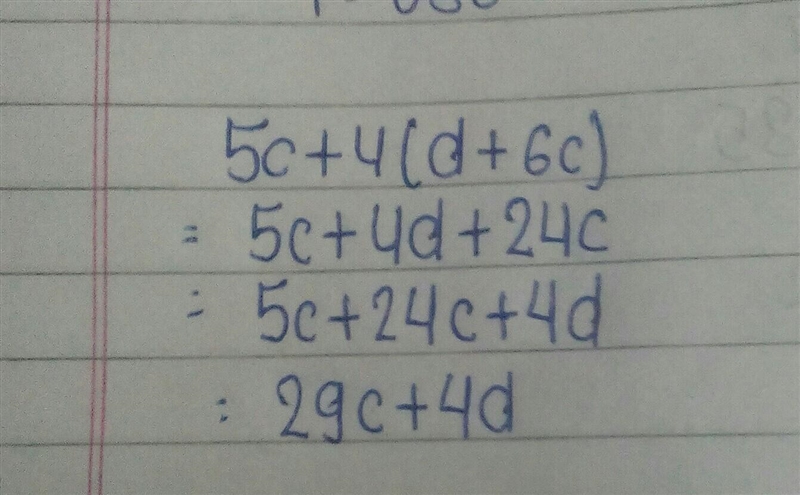 5c+4(d+6c)
= 5c+4d+24c
= 5c+24c+4d
= 29c+4d